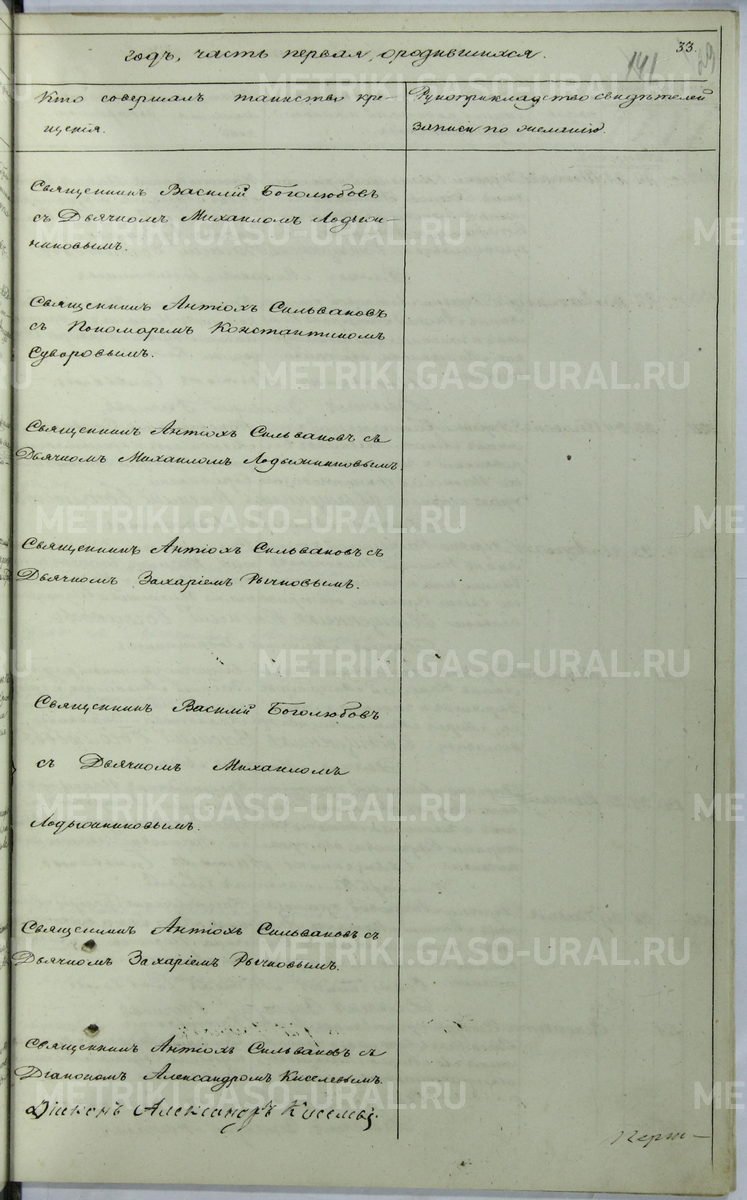 33.
141
годъ, часть первая, о родившихся.
Кто совершалъ таинство кре-
щенія.
Рукоприкладство свидѣтелей
записи по желанію.
Священникъ Василій Боголюбовъ
съ Дьячкомъ Михаиломъ Лодыж-
никовымъ.
Священникъ Антіохъ Сильвановъ
съ Пономаремъ Константиномъ
Суворовымъ.
Священникъ Антіохъ Сильвановъ съ
Дьячкомъ Михаиломъ Лодыжниковымъ
Священникъ Антіохъ Сильвановъ съ
Дьячкомъ Захаріемъ Рычковымъ.
Священникъ Василій Боголюбовъ
съ Дьячкомъ Михаиломъ
Лодыжниковымъ.
Священникъ Антіохъ Сильвановъ съ
Дьячкомъ Захаріемъ Рычковымъ.
Священникъ Антіохъ Сильвановъ съ
Діакономъ Александромъ Киселевымъ.
Діаконъ Александръ Киселевъ.
METRIKI.GASO-URAL.RU